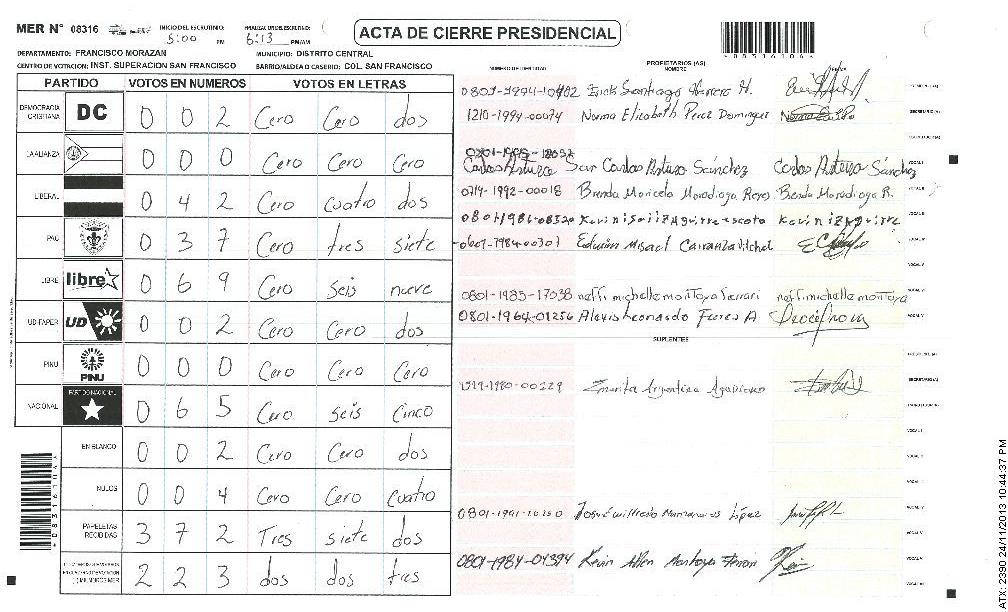 MER Nº 08316 INICIO DEL ESCRUTINIO: 5:00 PM FINALIZACION DEL ESCRUTINIO: 6:13 PM/AM
ACTA DE CIERRE PRESIDENCIAL
DEPARTAMENTO: FRANCISCO MORAZAN MUNICIPIO: DISTRITO CENTRAL
CENTRO DE VOTACION: INST. SUPERACION SAN FRANCISCO BARRIO/ALDEA O CASERIO: COL. SAN FRANCISCO
PARTIDO VOTOS EN NUMEROS VOTOS EN LETRAS
DEMOCRACIA CRISTIANA DC 0 0 2 Cero Cero dos
LA ALIANZA 0 0 0 Cero Cero Cero
LIBERAL 0 4 2 Cero cuatro dos
PAC 0 3 7 Cero tres siete
LIBRE libre 0 6 9 Cero seis nueve
UD-FAPER UD 0 0 2 Cero Cero dos
PINU PINU 0 0 0 Cero Cero Cero
NACIONAL PARTIDO NACIONAL 0 6 5 Cero seis Cinco
EN BLANCO 0 0 2 Cero Cero dos
NULOS 0 0 4 Cero Cero cuatro
PAPELETAS RECIBIDAS 3 7 2 Tres siete dos
2 2 3 dos dos tres
NUMERO DE IDENTIDAD PROPIETARIOS (AS) NOMBRE
Erick Santiago Herrera H.
1210-1994-00074 Norma Elizabeth Perez Dominguez SECRETARIO (A)
Carlos Arturo Sánchez Carlos Arturo Sánchez VOCAL I
0714-1992-00018 Brenda Maricela Maradiaga Reyes Brenda Maradiaga R. VOCAL II
VOCAL III
0601-1984-00301 Edwin Misael Carranza VOCAL IV
VOCAL V
0801-1985-17038 neffi michelle montoya ferrari neffi michelle montoya VOCAL VI
0801-1964-01256 Alexis Leonardo Flores A VOCAL VII
SUPLENTES
PRESIDENTE (A)
Emerita Argentina SECRETARIO (A)
VOCAL I
VOCAL II
VOCAL III
VOCAL IV
Josué Wilfredo López
VOCAL V
0801-1984-04394 Kevin Allen Montoya Ferrari Kevin
ATX: 2390 24/11/2013 10:44:37 PM